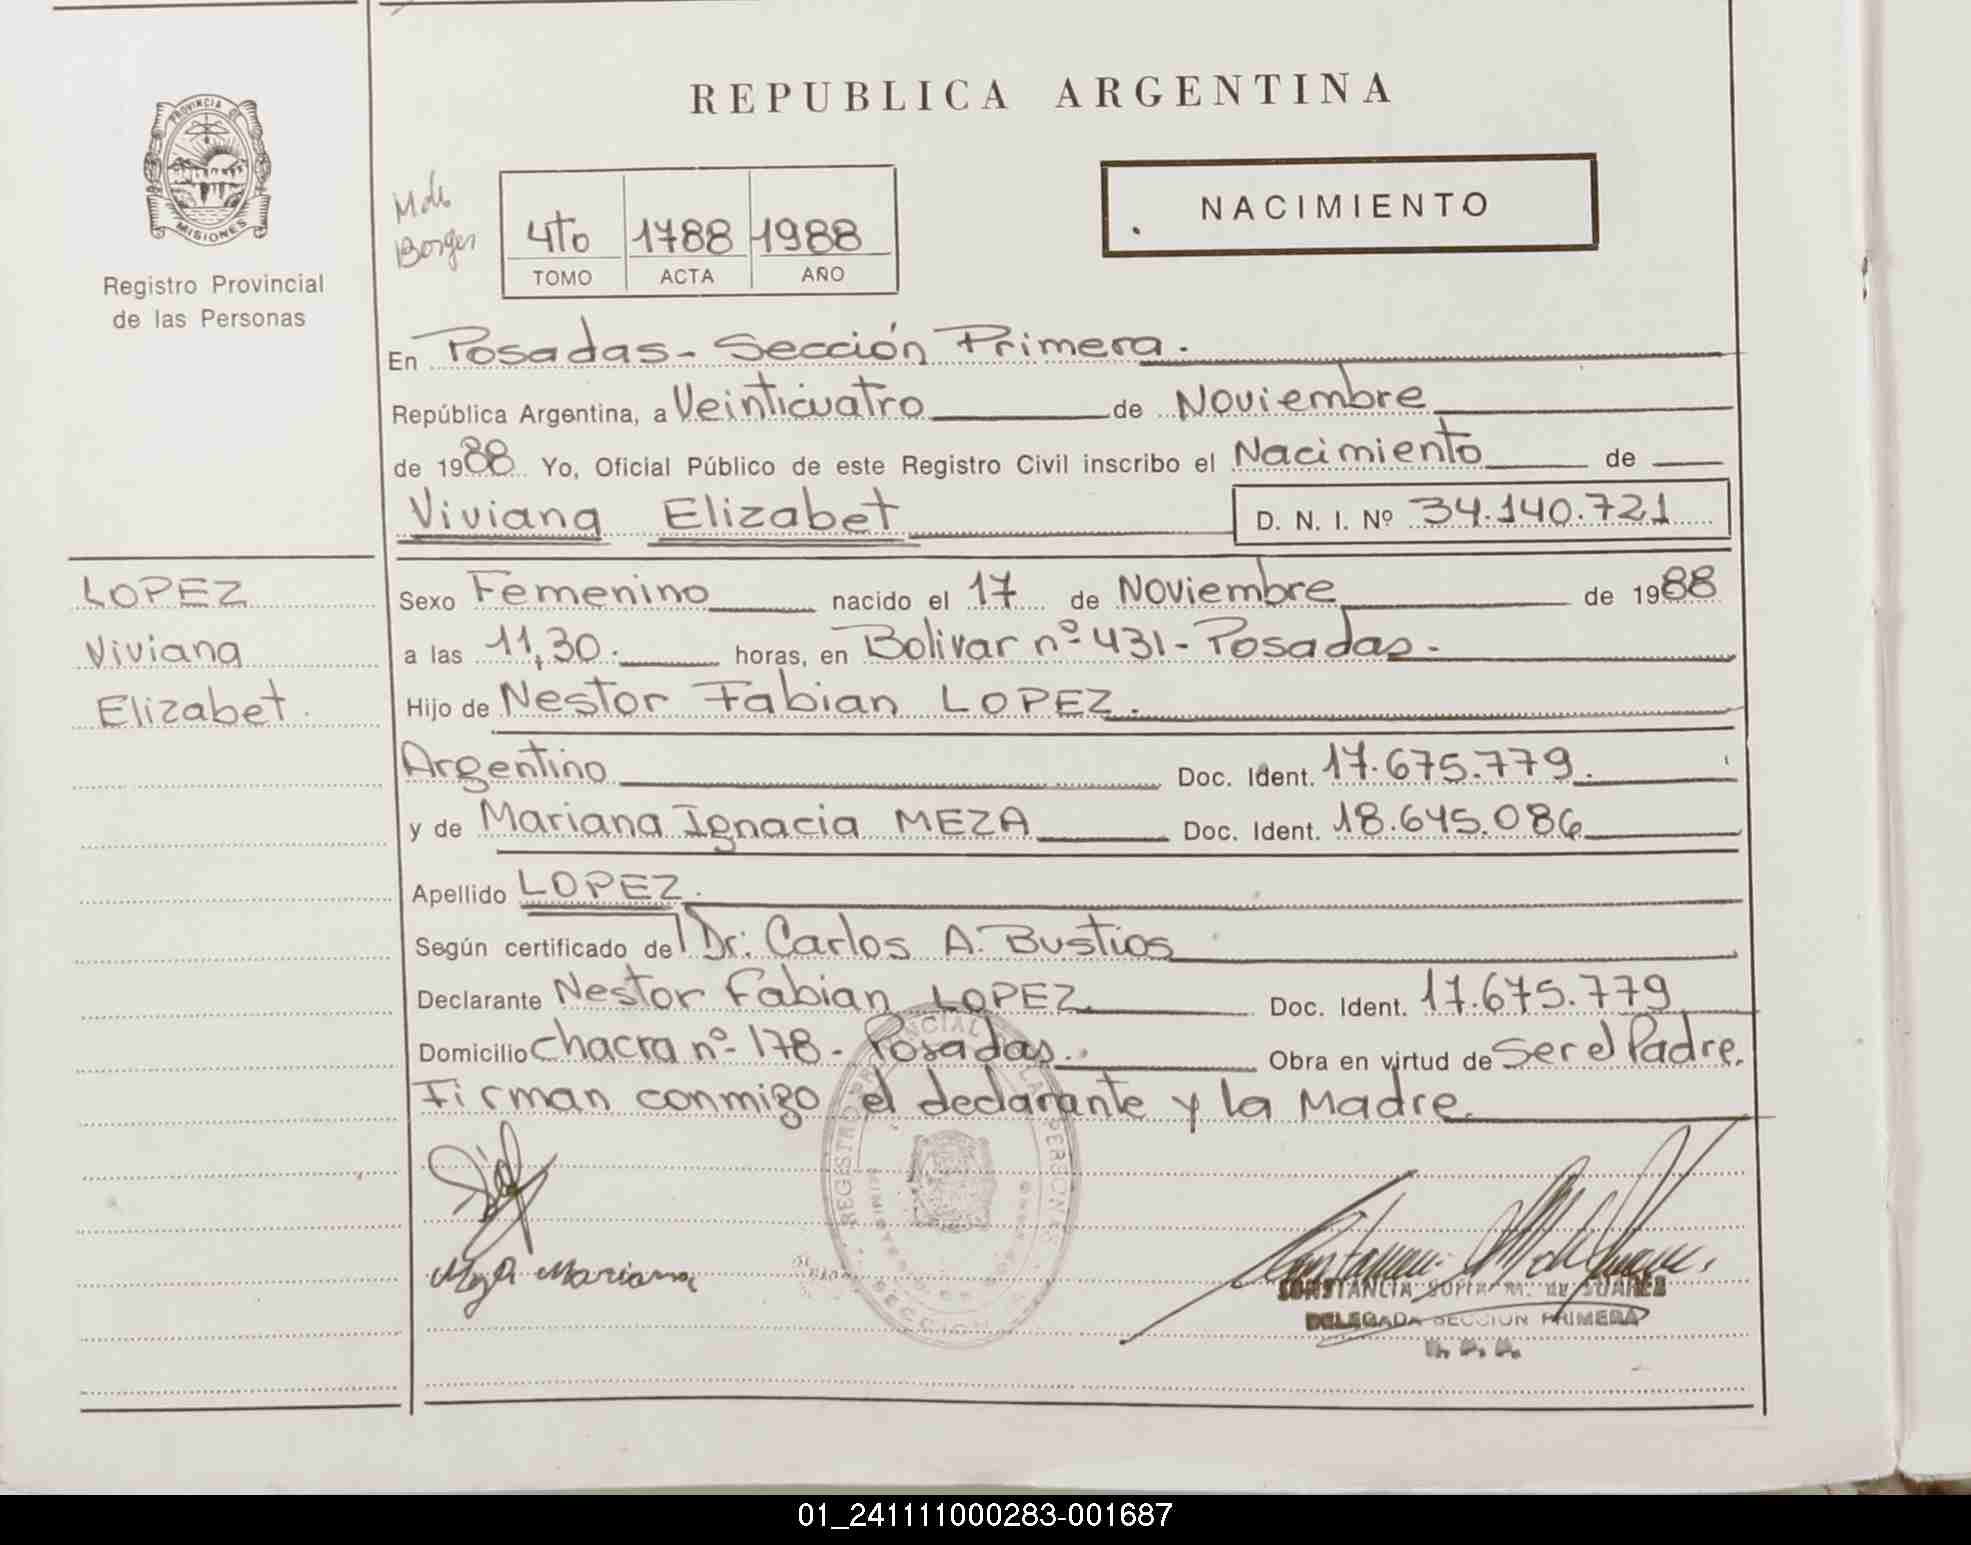 REPUBLICA ARGENTINA
PROVINCIA DE
MISIONES
Registro Provincial
de las Personas
4to 1788 1988
TOMO ACTA AÑO
NACIMIENTO
Borges
En Posadas - Sección Primera.
República Argentina, a Veinticuatro de Noviembre
de 1988 Yo, Oficial Público de este Registro Civil inscribo el Nacimiento de
Viviana Elizabet D. N. I. Nº 34.140.721
LOPEZ
Viviana
Elizabet.
Sexo Femenino nacido el 17 de Noviembre de 1988
a las 11,30. horas, en Bolivar nº 431 - Posadas.
Hijo de Nestor Fabian LOPEZ.
Argentino Doc. Ident. 17.675.779.
y de Mariana Ignacia MEZA Doc. Ident. 18.645.086
Apellido LOPEZ.
Según certificado de Dr: Carlos A. Bustios
Declarante Nestor Fabian LOPEZ Doc. Ident. 17.675.779
Domicilio chacra nº 178 - Posadas. Obra en virtud de Ser el Padre.
Firman conmigo el declarante y la Madre.
Meza Mariana
CONSTANCIA SOFIA M. de SUAREZ
DELEGADA SECCION PRIMERA
01_241111000283-001687